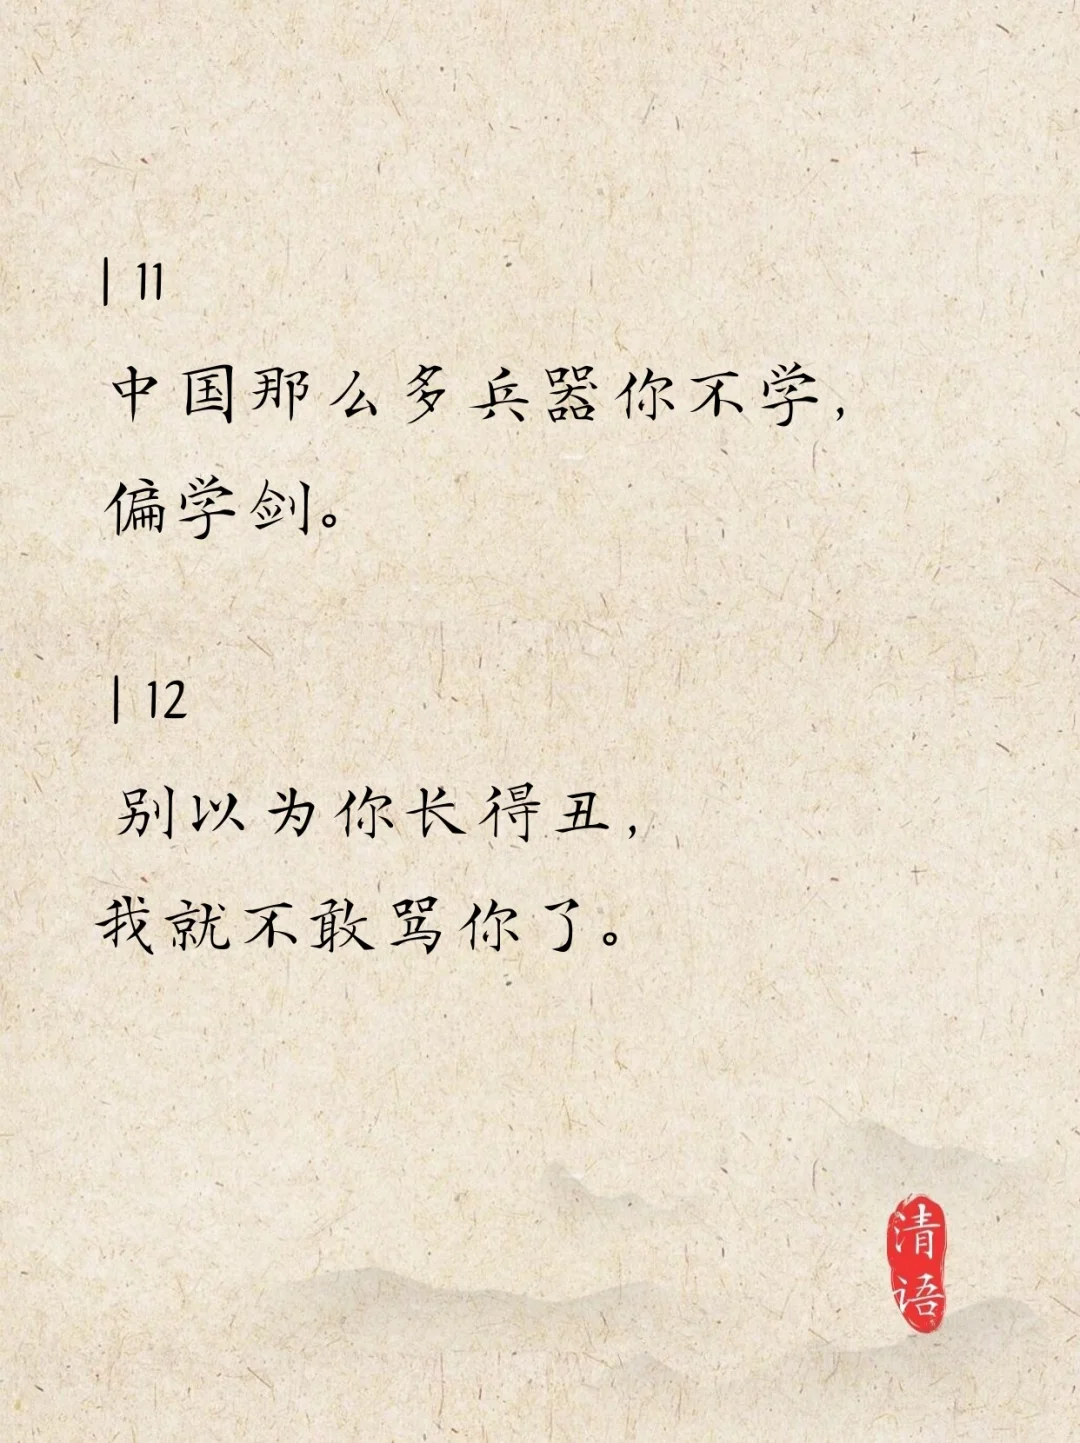 | 11
中国那么多兵器你不学，
偏学剑。
| 12
别以为你长得丑，
我就不敢骂你了。
清语